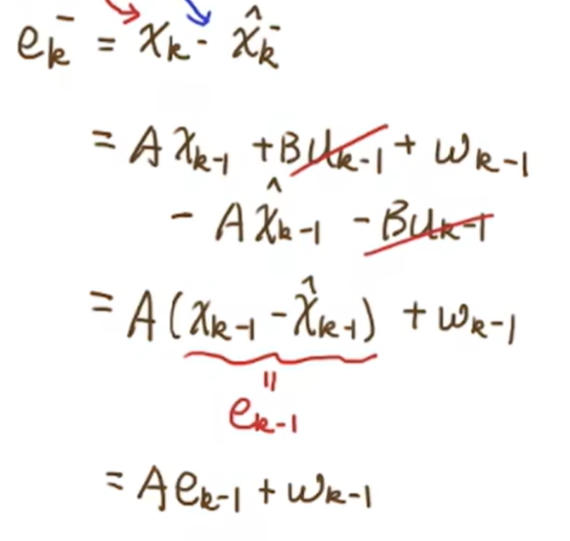 e_k^- = x_k - x̂_k^-
= A x_{k-1} + B u_{k-1} + w_{k-1}
- A x̂_{k-1} - B u_{k-1}
= A (x_{k-1} - x̂_{k-1}) + w_{k-1}
=
e_{k-1}
= A e_{k-1} + w_{k-1}